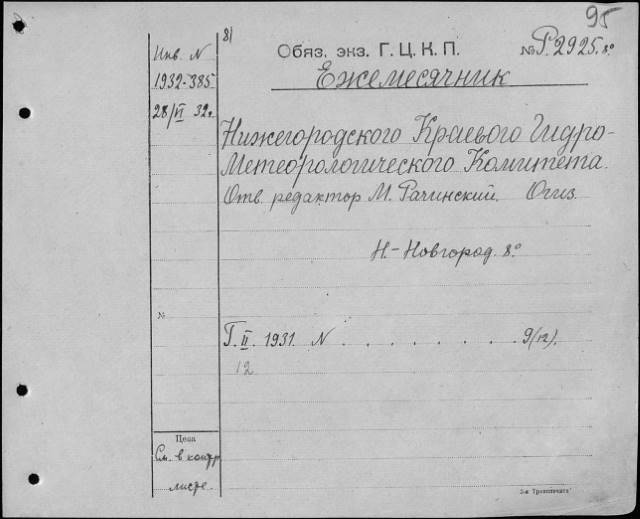 95
8)
Инв. N
1932-385
28/VI 32г
Обяз. экз. Г.Ц.К.П.
№ Р.2925.8º
Ежемесячник
Нижегородского Краевого Гидро-
Метеорологического Комитета.
Отв. редактор М. Рачинский. Огиз.
Н-Новгород. 8º
№
Г. II. 1931. N . . . . . . . 9(12).
12
Цена
См. в контр
листе.